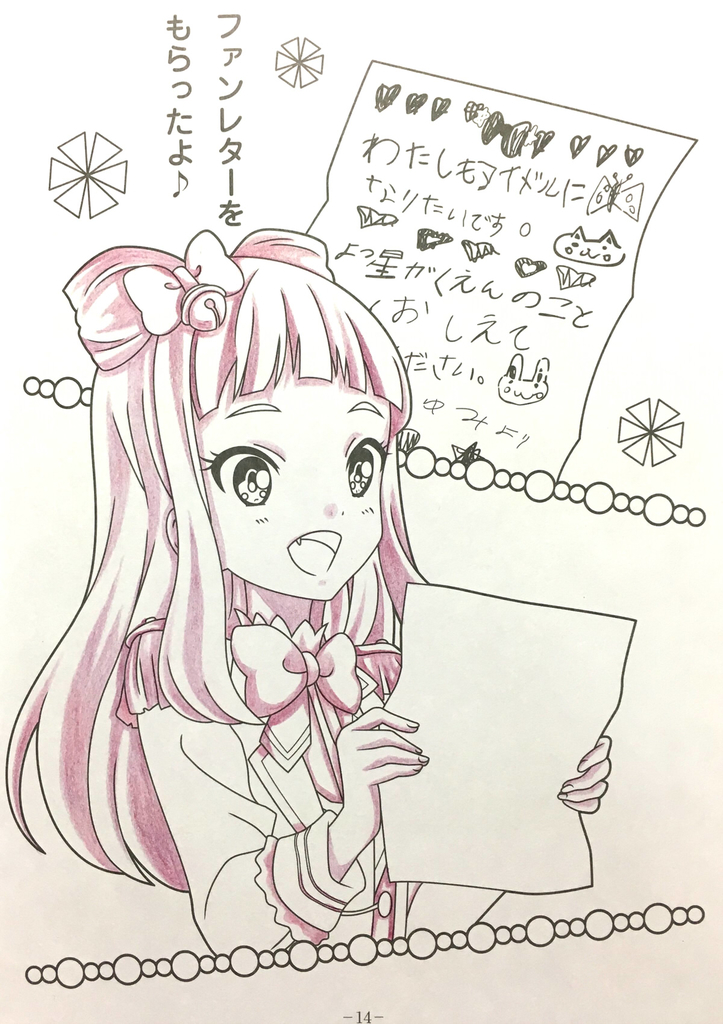 ファンレターを
もらったよ♪
わたしもアイドルに
なりたいです。
よつ星がくえんのこと
おしえて
ください。
ゆつみより
-14-